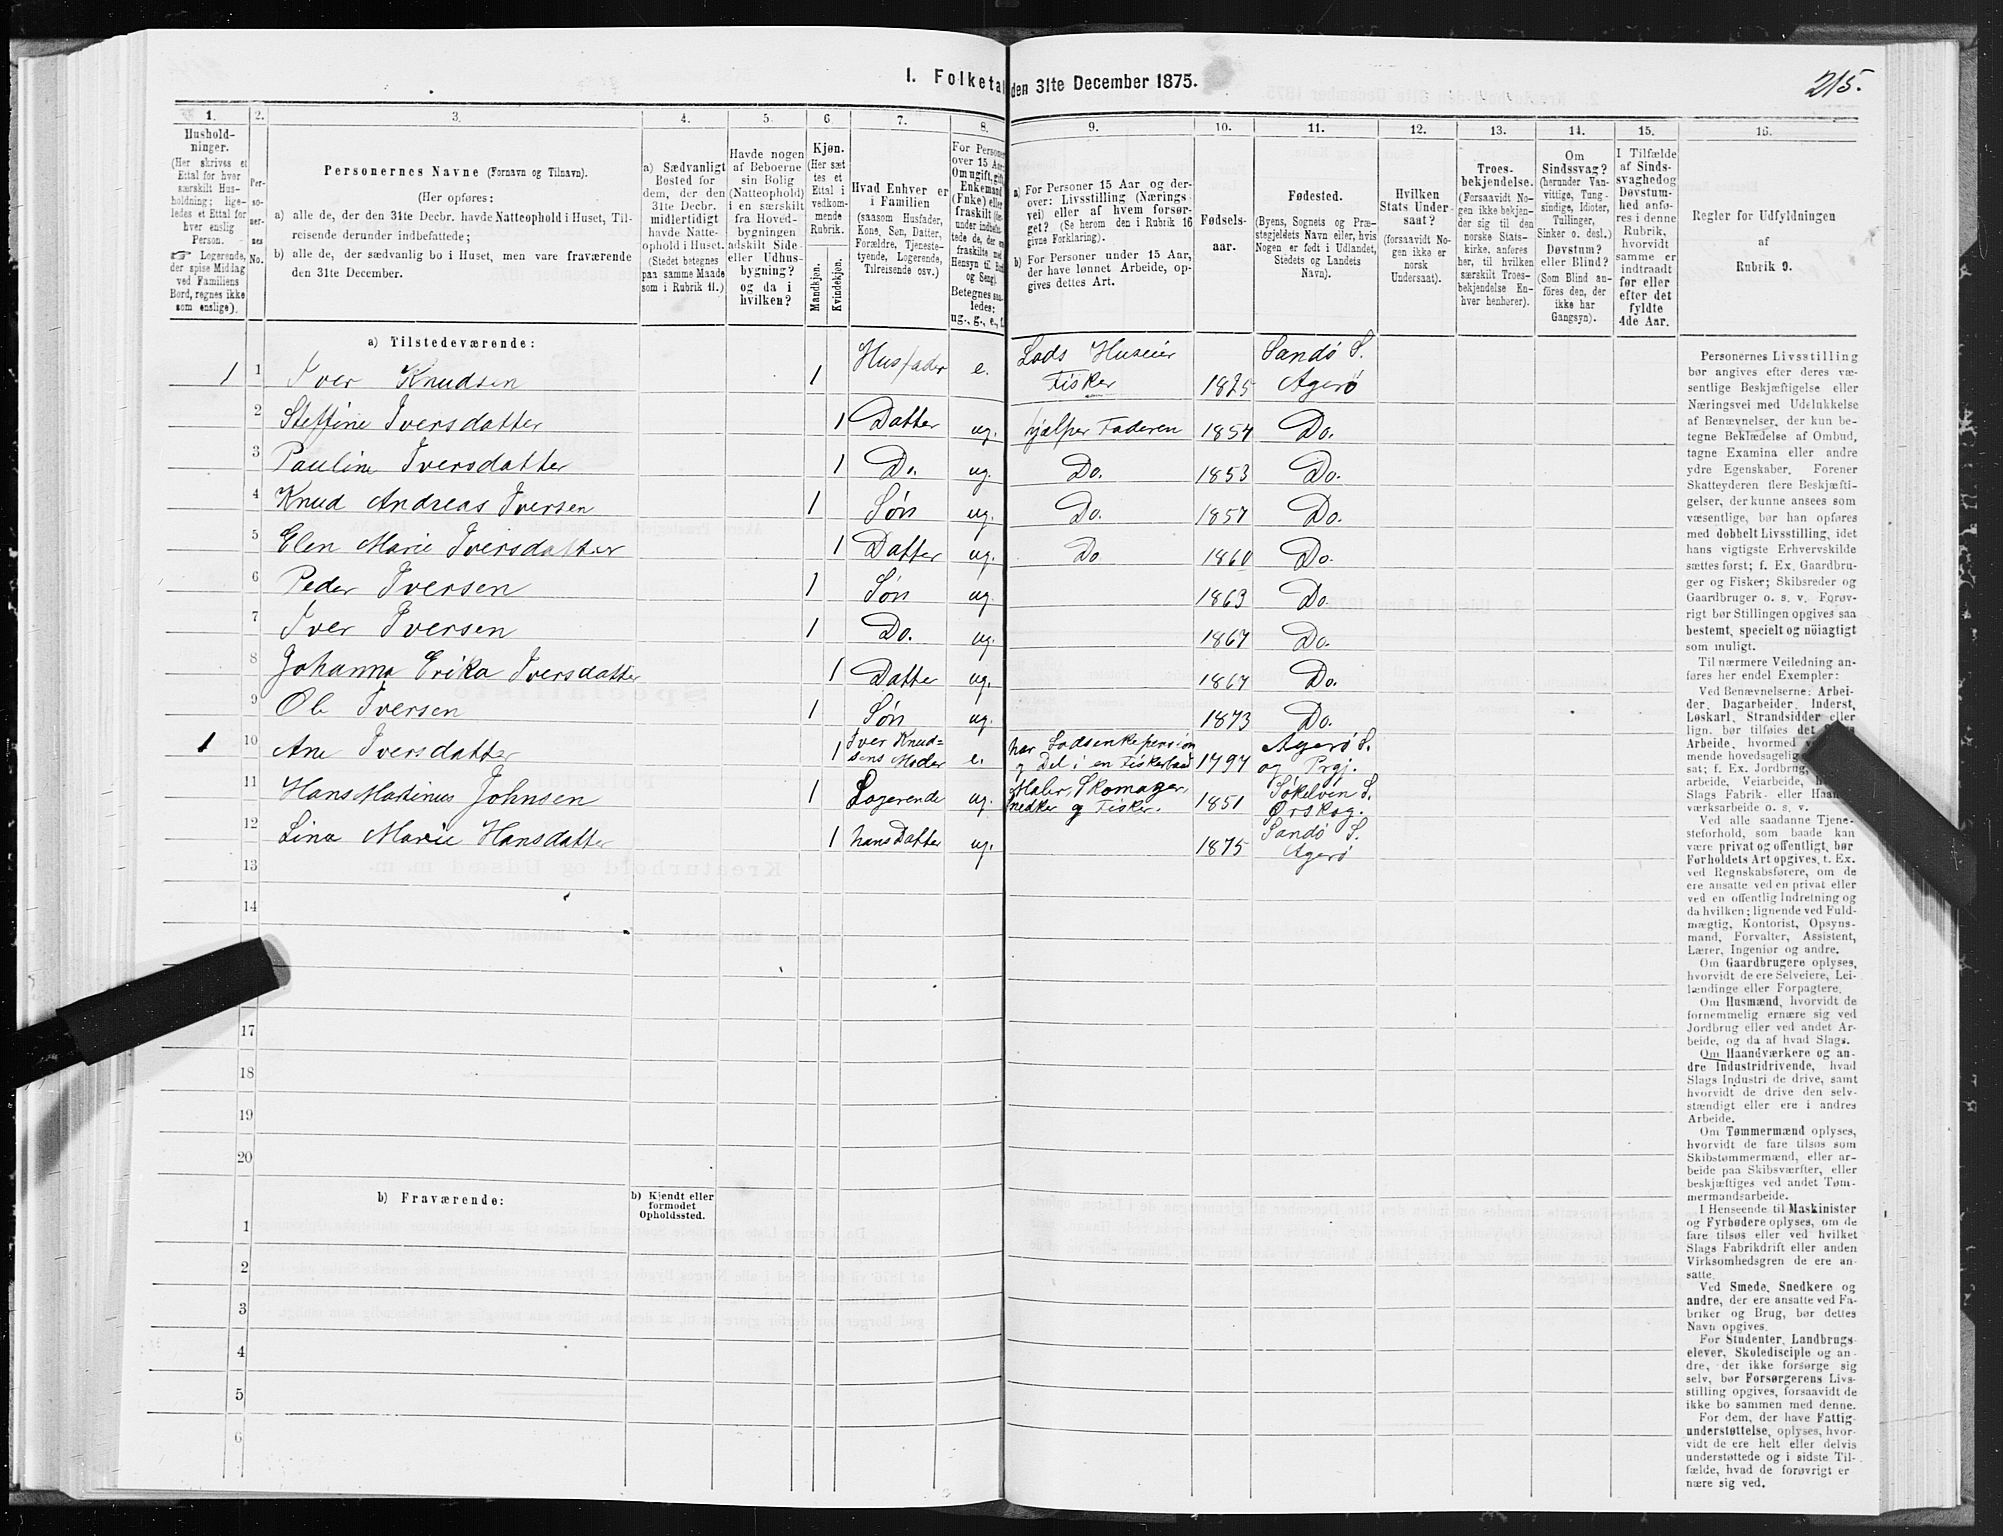 215.
I. Folketal den 31te December 1875.
1. 2. 3. 4. 5. 6. 7. 8. 9. 10. 11. 12. 13. 14. 15. 16.
Hushold-
ninger.
(Her skrives et
Ettal for hver
særskilt Hus-
holdning; lige-
ledes et Ettal for
hver enslig
Person.
☞ Logerende,
der spise Middag
ved Familiens
Bord, regnes ikke
som enslige).
Per-
so-
ner-
nes
No.
Personernes Navne (Fornavn og Tilnavn).
(Her opføres:
a) alle de, der den 31te Decbr. havde Natteophold i Huset, Til-
reisende derunder indbefattede;
b) alle de, der sædvanlig bo i Huset, men vare fraværende
den 31te December.
a) Sædvanligt
Bosted for
dem, der den
31te Decbr.
midlertidigt
havde Natte-
ophold i Huset.
(Stedet betegnes
paa samme Maade
som i Rubrik 11.)
Havde nogen
af Beboerne
sin Bolig
(Natteophold)
i en særskilt
fra Hoved-
bygningen
adskilt Side-
eller Udhus-
bygning?
og da i
hvilken?
Kjøn.
(Her sæt-
tes et
Ettal i
vedkom-
mende
Rubrik.
Mandkjøn.
Kvindekjøn.
Hvad Enhver er
i Familien
(saasom Husfader,
Kone, Søn, Datter,
Forældre, Tjeneste-
tyende, Logerende,
Tilreisende osv.)
For Personer
over 15 Aar:
Om ugift, gift,
Enkemand
(Enke) eller
fraskilt
Betegnes saa-
ledes:
ug., g., e., f.
a) For Personer 15 Aar og der-
over: Livsstilling (Nærings-
vei) eller af hvem forsør-
get? (Se herom den i Rubrik 16
givne Forklaring).
b) For Personer under 15 Aar,
der have lønnet Arbeide, op-
gives dettes Art.
Fødsels-
aar.
Fødested.
(Byens, Sognets og Præ-
stegjeldets Navn eller, hvis
Nogen er født i Udlandet,
Stedets og Landets
Navn).
Hvilken
Stats Under-
saat?
(forsaavidt No-
gen ikke er
norsk
Undersaat).
Troes-
bekjendelse.
(Forsaavidt No-
gen ikke bekjen-
der sig til den
norske Stats-
kirke, anføres
her, til hvilken
særskilt Troes-
bekjendelse En-
hver henhører).
Om
Sindssvag?
(herunder Van-
vittige, Tung-
sindige, Idioter,
Tullinger,
Sinker o. desl.)
Døvstum?
eller Blind?
(Som Blind an-
føres den, der
ikke har
Gangsyn).
I Tilfælde
af Sinds-
svaghed og
Døvstum-
hed anfø-
res i denne
Rubrik,
hvorvidt
samme er
indtraadt
før eller
efter det
fyldte
4de Aar.
Regler for Udfyldningen
af
Rubrik 9.
a) Tilstedeværende:
1 1 Iver Knudsen 1 Husfader e. Lods Huseier Fisker 1825 Sandø S. Agerø
2 Steffine Iversdatter 1 Datter ug. hjælper Faderen 1854 Do.
3 Pauline Iversdatter 1 Do. ug. Do. 1853 Do.
4 Knud Andreas Iversen 1 Søn ug. Do. 1857 Do.
5 Elen Marie Iversdatter 1 Datter ug. Do 1860 Do.
6 Peder Iversen 1 Søn ug. 1863 Do.
7 Iver Iversen 1 Do. ug. 1867 Do.
8 Johanna Erika Iversdatter 1 Datter ug. 1867 Do.
9 Ole Iversen 1 Søn ug. 1873 Do.
1 10 Ane Iversdatter 1 Iver Knud-sens Moder e. har Lodsenkepension og Del i en Fiskerbaad 1797 Agerø S. og Prgj.
11 Hans Martinus Johnsen 1 Logerende ug. Maler, Skomager, Snedker og Fisker. 1851 Søkelven S. Ørskog.
12 Lina Marie Hansdatter 1 hans Datter ug. 1875 Sandø S. Agerø
13
14
17
18
19
20
b) Fraværende:
b) Kjendt eller
formodet
Opholdssted.
1
2
3
4
5
6
Personernes Livsstilling
bør angives efter deres væ-
sentlige Beskjæftigelse eller
Næringsvei med Udelukkelse
af Benævnelser, der kun be-
tegne Beklædelse af Ombud,
tagne Examina eller andre
ydre Egenskaber. Forener
Skatteyderen flere Beskjæfti-
gelser, der kunne ansees som
væsentlige, bør han opføres
med dobbelt Livsstilling, idet
hans vigtigste Erhvervskilde
sættes først; f. Ex. Gaardbru-
ger og Fisker; Skibsreder og
Gaardbruger o. s. v. Forøv-
rigt bør Stillingen opgives saa
bestemt, specielt og nöiagtigt
som muligt.
Til nærmere Veiledning an-
føres her endel Exempler:
Ved Benævnelserne: Arbei-
der, Dagarbeider, Inderst,
Løskarl, Strandsidder eller
lign. bør tilføies det
Arbeide, hvormed
mende hovedsagelig
sat; f. Ex. Jordbrug,
arbeide, Veiarbeide,
Slags Fabrik- eller Haand-
værksarbeide o. s. v.
Ved alle saadanne Tjene-
steforhold, som baade kan
være privat og offentligt, bør
Forholdets Art opgives, t. Ex.
ved Regnskabsførere, om de
ere ansatte ved en privat eller
ved en offentlig Indretning og
da hvilken; lignende ved Fuld-
mægtig, Kontorist, Opsyns-
mand, Forvalter, Assistent,
Lærer, Ingeniør og andre.
Om Gaardbrugere oplyses,
hvorvidt de ere Selveiere, Lei-
lændinge eller Forpagtere.
Om Husmænd, hvorvidt de
fornemmelig ernære sig ved
Jordbrug eller ved andet Ar-
beide, og da af hvad Slags.
Om Haandværkere og an-
dre Industridrivende, hvad
Slags Industri de drive, samt
hvorvidt de drive den selv-
stændigt eller ere i andres
Arbeide.
Om Tømmermænd oplyses,
hvorvidt de fare tilsøs som
Skibstømmermænd, eller ar-
beide paa Skibsværfter, eller
beskjæftiges ved andet Tøm-
mermandsarbeide.
I Henseende til Maskinister
og Fyrbødere oplyses, om de
fare tilsøs eller ved hvilket
Slags Fabrikdrift eller anden
Virksomhedsgren de ere an-
satte.
Ved Smede, Snedkere og
andre, der ere ansatte ved Fa-
briker og Brug, bør dettes
Navn opgives.
For Studenter, Landbrugs-
elever, Skoledisciple og an-
dre, der ikke forsørge sig
selv, bør Forsørgerens Livs-
stilling opgives, forsaavidt de
ikke bo sammen med denne.
For dem, der have Fattig-
understøttelse, oplyses, hvor-
vidt de ere helt eller delvis
understøttede og i sidste Til-
fælde, hvad de forøvrigt er
nære sig ved.